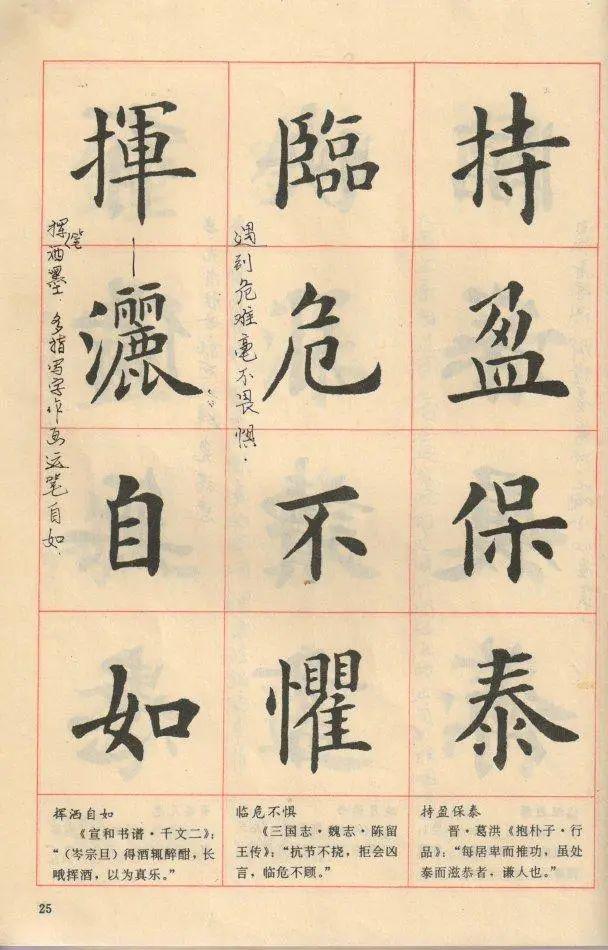 持盈保泰
臨危不懼
揮灑自如
遇到危难毫不畏惧.
挥笔洒墨.多指写字作画运笔自如.
持盈保泰
晋·葛洪《抱朴子·行
品》:“每居卑而推功，虽处
泰而滋恭者，谦人也。”
临危不惧
《三国志·魏志·陈留
王传》:“抗节不挠，拒会凶
言，临危不顾。”
挥洒自如
《宣和书谱·千文二》:
“(岑宗旦)得酒辄醉酣，长
哦挥洒，以为真乐。”
25